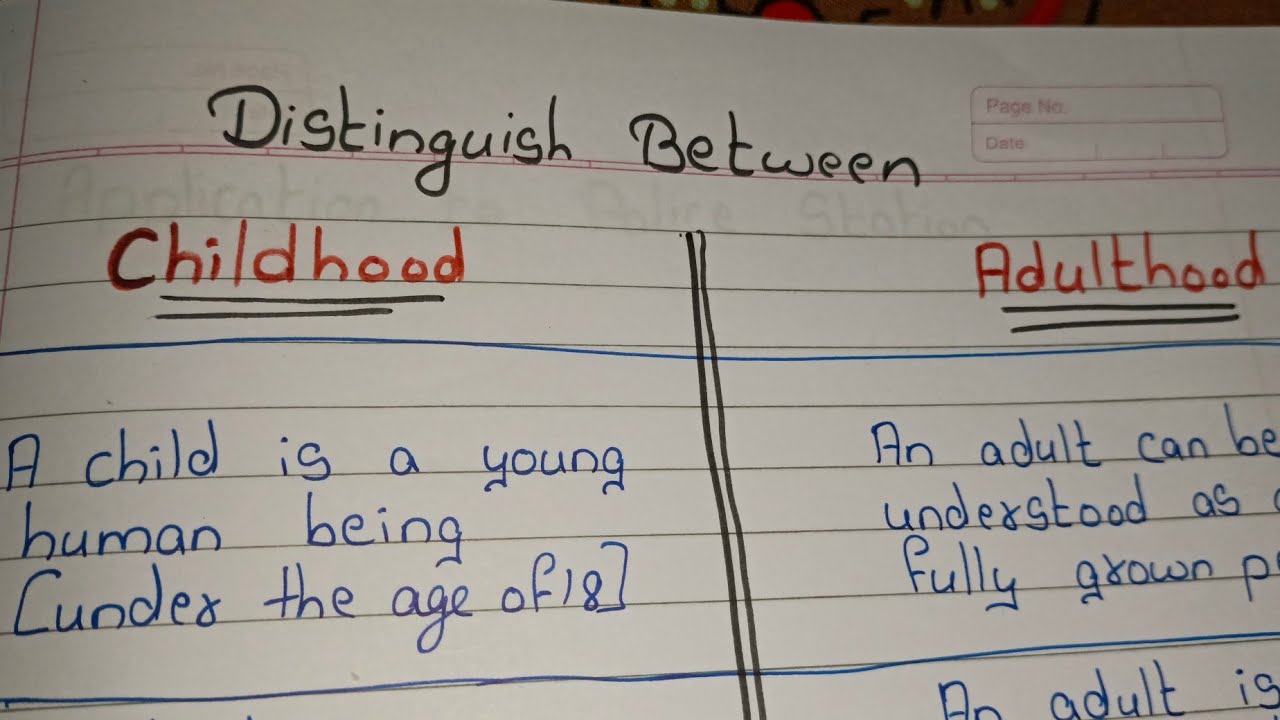 Distinguish Between
Page No.
Date
Childhood
Adulthood
A child is a young
human being
[under the age of 18]
An adult can be
understood as
fully grown
An adult is